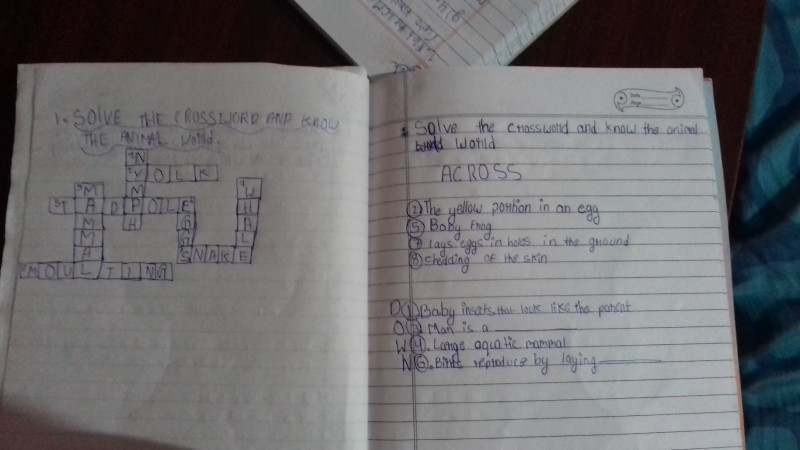 1. SOLVE THE CROSSWORD AND KNOW
THE ANIMAL World.
1N
2Y O L K
3M M 4W
5T A D P O L E 6E H
M H G A
M G L
A 7S N A K E
8M O U L T I N G
Date
Page
Solve the crossword and know the animal
World
ACROSS
② The yellow portion in an egg
⑤ Baby frog
⑦ lays eggs in holes in the ground
⑧ Shedding of the skin
D ① Baby insects that look like the parent
O ③ Man is a
W ④. Large aquatic mammal
N ⑥. Birds reproduce by laying